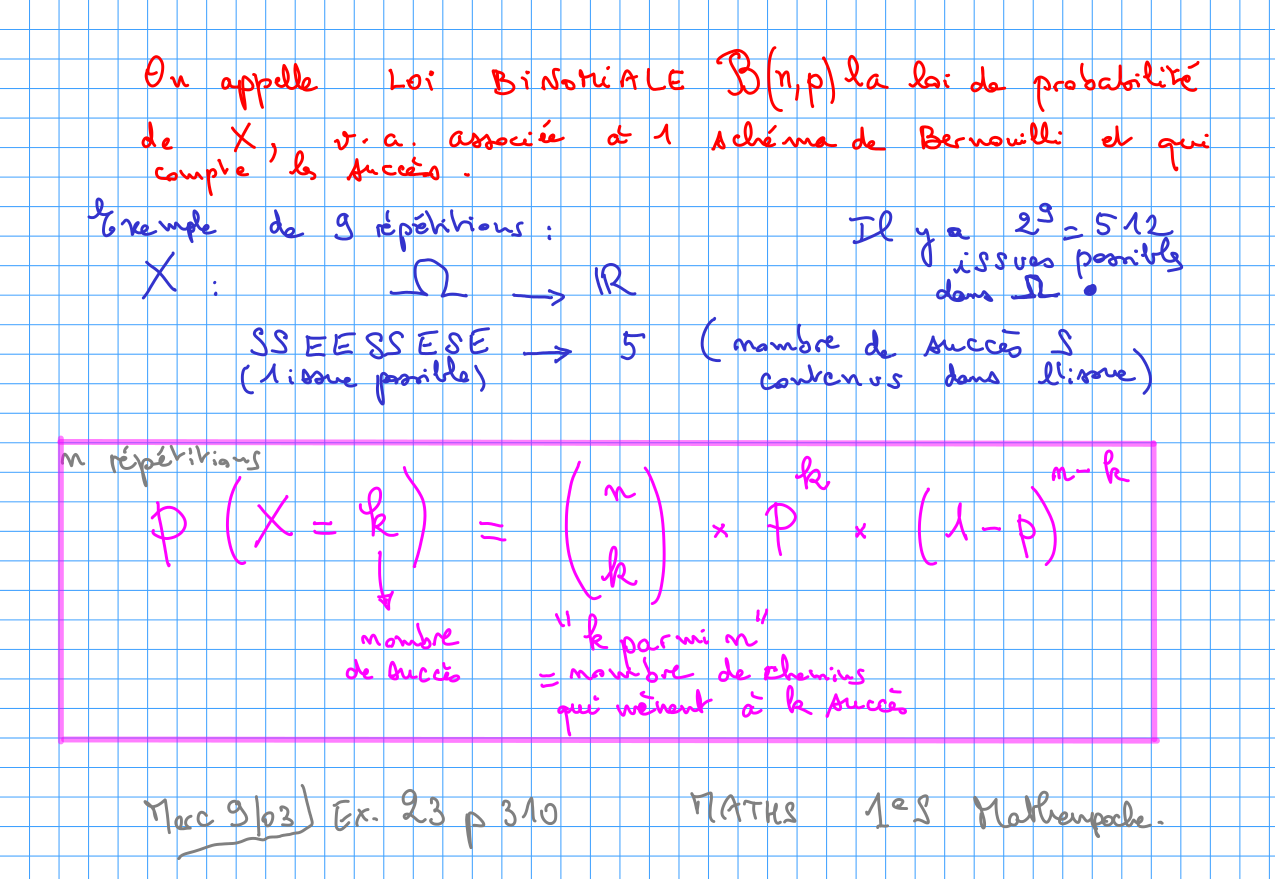 On appelle LOi BiNOMiALE B(n,p) la loi de probabilité
de X, v.a. associée à 1 schéma de Bernouilli et qui
compte les succès.
Exemple de 9 répétitions :
Il y a 2^9 = 512
issues possibles
dans Ω.
X : Ω → ℝ
SSEESSESE → 5 (nombre de succès S
contenus dans l'issue)
(1 issue possible)
n répétitions
p (X = k) = (n k) × p^k × (1-p)^(n-k)
nombre
de succès
"k parmi n"
= nombre de chemins
qui mènent à k succès
Merc 9/03) Ex. 23 p 310 MATHS 1eS Mathenpoche.